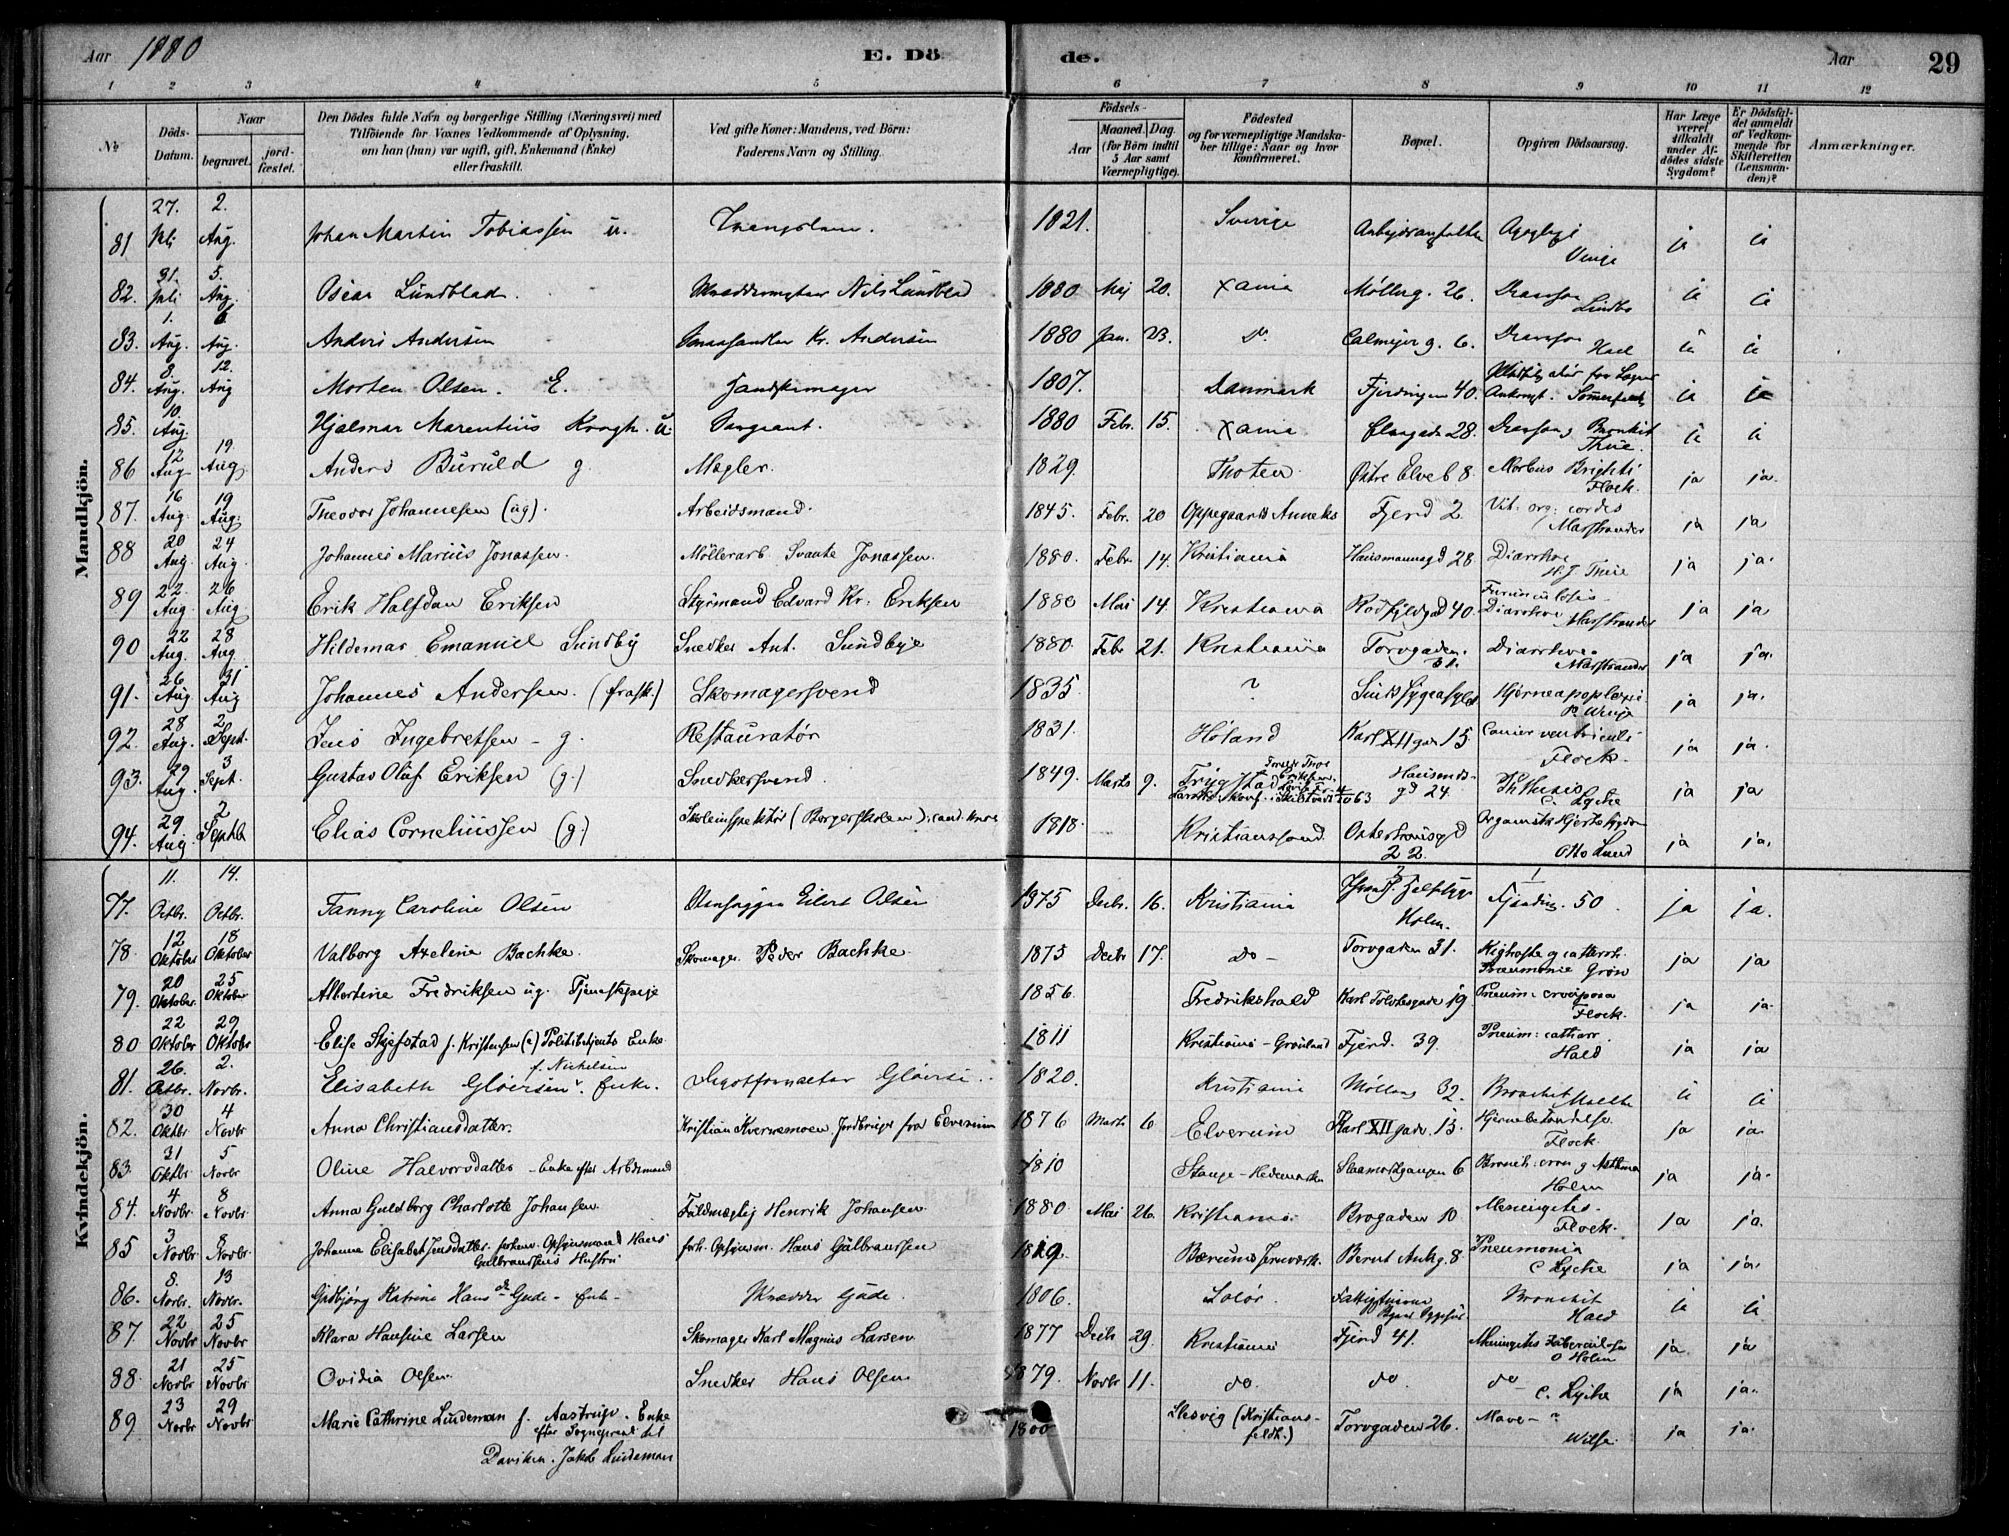 Aar 1880 E. Dö de. Aar 29
1 2 3 4 5 6 7 8 9 10 11 12
№ Döds-Datum. Naar begravet. jord-fæstet. Den Dödes fulde Navn og borgerlige Stilling (Næringsvei) med Tilföiende for Voxnes Vedkommende af Oplysning, om han (hun) var ugift, gift, Enkemand (Enke) eller fraskilt. Ved gifte Koner: Mandens, ved Börn: Faderens Navn og Stilling. Födsels- Aar Maaned. Dag. (for Börn indtil 5 Aar samt Værnepligtige). Födested og for værnepligtige Mandskaber tillige: Naar og hvor konfirmeret. Bopæl. Opgiven Dödsaarsag. Har Læge været tilkaldt under Afdödes sidste Sygdom? Er Dödsfaldet anmeldt af Vedkommende for Skifteretten (Lensmanden)? Anmærkninger.
Mandkjön.
81 27. Juli 2. Aug. Johan Martin Tobiassen u. 1821. Sverige ja ja
82. 31. Juli 5. Aug. Oscar Lundblad. Nils Lundblad 1880 Maj 20. Xania Møllerg. 26. Lindbo ja ja
83. 1. Aug. 6. Aug. Anders Andersen Kr. Andersen 1880 Jan. 23. Do Calmeyer g. 6. ja ja
84. 8. Aug. 12. Aug Morten Olsen. E. Handskemager 1807. Danmark Fjerdingen 40. ja ja
85. 10. Aug Hjalmar Marentius Krogh. u. Sergeant. 1880 Febr. 15. Xania 28. Bronkit Thue. ja ja
86 12 Aug 19. Aug Anders Buruld g. Mægler. 1829. Thoten. Østre Elveb 8. Morbus Brighti Flock. ja ja.
87. 16 Aug. 19 Aug. Theodor Johannesen (ug). Arbeidsmand. 1845. Febr. 20 Oppegaards Anneks Fjerd 2 Vit. org. cordis Marstrander ja ja
88 20 Aug. 24 Aug. Johannes Marius Jonassen. Møllerarb. Svante Jonassen. 1880. Febr 14. Kristiania Hausmannsgd 28 Diarrhoe H. J. Thue ja ja.
89 22. Aug. 26 Aug Erik Halfdan Eriksen Styrmand Edvard Kr. Eriksen 1880 Mai 14. Kristiania Rodfyldgad 40. Furunculosis Diarrhoe Marstrander ja ja
90 22 Aug. 28 Aug. Hildemar Emanuel Sundby Snedker Ant. Sundbye 1880. Febr 21. Kristiania Torvgaden. 31. Diarrhoe. Marstrander ja ja.
91. 26 Aug. 31 Aug Johannes Andersen. (frask.) Skomagersvend 1835 ? Hjerneapoplexie ja ja.
92. 28 Aug. 2 Sept. Jens Ingebretsen - g. Restauratør 1831. Høland Karl XII gad 15 Cancer ventriculi Flock. ja ja.
93. 29 Aug. 3 Sept. Gustav Olaf Eriksen (g.) Snedkersvend. 1849. Marts 9. Trygstad Hausmds-gd 24. Pthisis C. Lyche ja ja
94. 29 Aug. 2 Septbr Elias Corneliussen (g.) Skoleinspektør (Borgerskolen) 1818. Kristianssand Osterhausgd 22. Organisk Hjertesygdom Otto Lund ja ja.
Kvindekjön.
77. 11. Octbr. 14. Octbr. Fanny Caroline Olsen Eilert Olsen 1875 Decbr. 16. Kristiania Holm. 50. ja ja.
78. 12 Oktober 18 Oktober Valborg Axeline Bachke. Skomager Peder Bachke. 1875 Decbr 17. Do - Torvgaden 31. Kighoste og catterrh. Pneumonie Grøn ja ja
79. 20 Oktober. 25 Oktober Albertine Fredriksen ug. Tjenestepige 1856. Fredrikshald 19 Pneum: crouposa Flock. ja ja.
80 22 Oktober 29 Oktober Elise Skjefstad f. Kristensen (e) Politibetjents Enke 1811 Kristiania - Grønland Fjerd. 39. Pneum: catharr. Hald ja ja
81. 26. Octbr. 2. Novbr. Elisabeth Gløersen f. Nickelsen Enke. Gløersen 1820. Kristiania Møllerg 32. Bronchit Malthe ja ja
82. 30 Oktbr 4 Novbr Anna Christiansdatter. Kristian Kvernemoen Jordbruger fra Elverum 1876 Marts 6 Elverum Karl XII gade. 13. Hjernebetændelse. Flock. ja ja.
83 31 Oktbr 5 Novbr Oline Halvorsdatter - Enke efter Arbdsmand 1810 Stange - Hedemarken 6 Bronch: cron og Asthma Holm ja ja.
84. 4 Novbr. 8 Novbr. Anna Guldborg Charlotte Johansen. Fuldmægtig Henrik Johansen. 1880. Mai 26. Kristiania. Brogaden 10. Meningitis. Flock. ja ja.
85 3 Novbr. 8 Novbr. Johanne Elisabet Jensdatter. forhenv. Opsynsmand Hans Gulbrandsens Hustru forh. Opsynsm. Hans Gulbranssen 1819. Bærums Jernværk. Bernt Ankg. 8 Pneumonia C Lyche ja ja.
86. 8. Novbr. 13 Novbr. Gudbjørg Katrine Hansdr Gude - Enke - Skrædder Gude. 1806. Solør. Bronchit Hald ja ja
87 22 Novbr 25 Novbr Klara Hansine Larsen Skomager Karl Magnus Larsen. 1877 Decbr 29. Kristiania Fjerd 41. Meningitis Tuberculosa O Holm ja. ja
88. 21 Novbr 25 Novbr. Ovidia Olsen. Snedker Hans Olsen 1879. Novbr 11. do. do. do - C. Lyche ja ja.
89 23 Novbr 29 Novbr Marie Cathrine Lindeman f. Aastrup. Enke 1800 Slesvig (Kristians-feldt.) Torvgaden 26. Mave - ? Wilse. ja ja.
efter Sogneprest til
Daviken. Jakob Lindeman